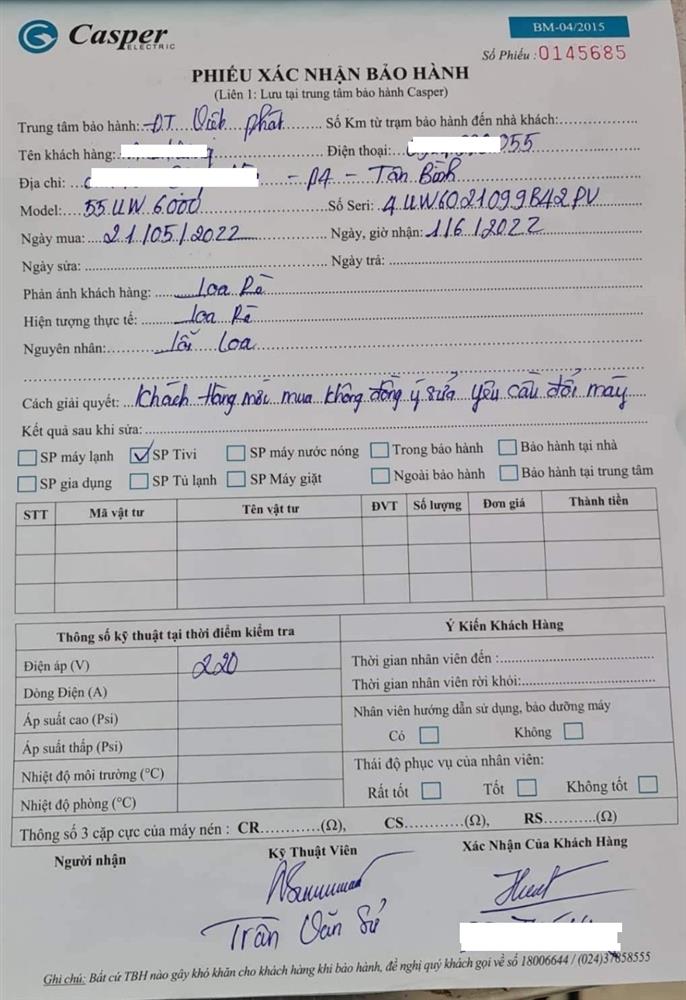 Casper
ELECTRIC
BM-04/2015
Số Phiếu : 0145685
PHIẾU XÁC NHẬN BẢO HÀNH
(Liên 1: Lưu tại trung tâm bảo hành Casper)
Trung tâm bảo hành: ĐT Việt Phát Số Km từ trạm bảo hành đến nhà khách:
Tên khách hàng: Điện thoại: 055
Địa chỉ: - P4 - Tân Bình
Model: 55UW6000 Số Seri: 4UW6021099B42PV
Ngày mua: 21/05/2022 Ngày, giờ nhận: 1/6/2022
Ngày sửa: Ngày trả:
Phản ánh khách hàng: Loa Rè
Hiện tượng thực tế: Loa Rè
Nguyên nhân: Lỗi Loa
Cách giải quyết: Khách Hàng mới mua không đồng ý sửa yêu cầu đổi máy
Kết quả sau khi sửa:
SP máy lạnh SP Tivi SP máy nước nóng Trong bảo hành Bảo hành tại nhà
SP gia dụng SP Tủ lạnh SP Máy giặt Ngoài bảo hành Bảo hành tại trung tâm
STT Mã vật tư Tên vật tư ĐVT Số lượng Đơn giá Thành tiền
Thông số kỹ thuật tại thời điểm kiểm tra
Điện áp (V) 220
Dòng Điện (A)
Áp suất cao (Psi)
Áp suất thấp (Psi)
Nhiệt độ môi trường (°C)
Nhiệt độ phòng (°C)
Ý Kiến Khách Hàng
Thời gian nhân viên đến :
Thời gian nhân viên rời khỏi:
Nhân viên hướng dẫn sử dụng, bảo dưỡng máy
Có Không
Thái độ phục vụ của nhân viên:
Rất tốt Tốt Không tốt
Thông số 3 cặp cực của máy nén : CR............(Ω), CS............(Ω), RS...........(Ω)
Người nhận Kỹ Thuật Viên Xác Nhận Của Khách Hàng
Trần Văn Sử
Ghi chú: Bất cứ TBH nào gây khó khăn cho khách hàng khi bảo hành, đề nghị quý khách gọi về số 18006644 / (024)37858555